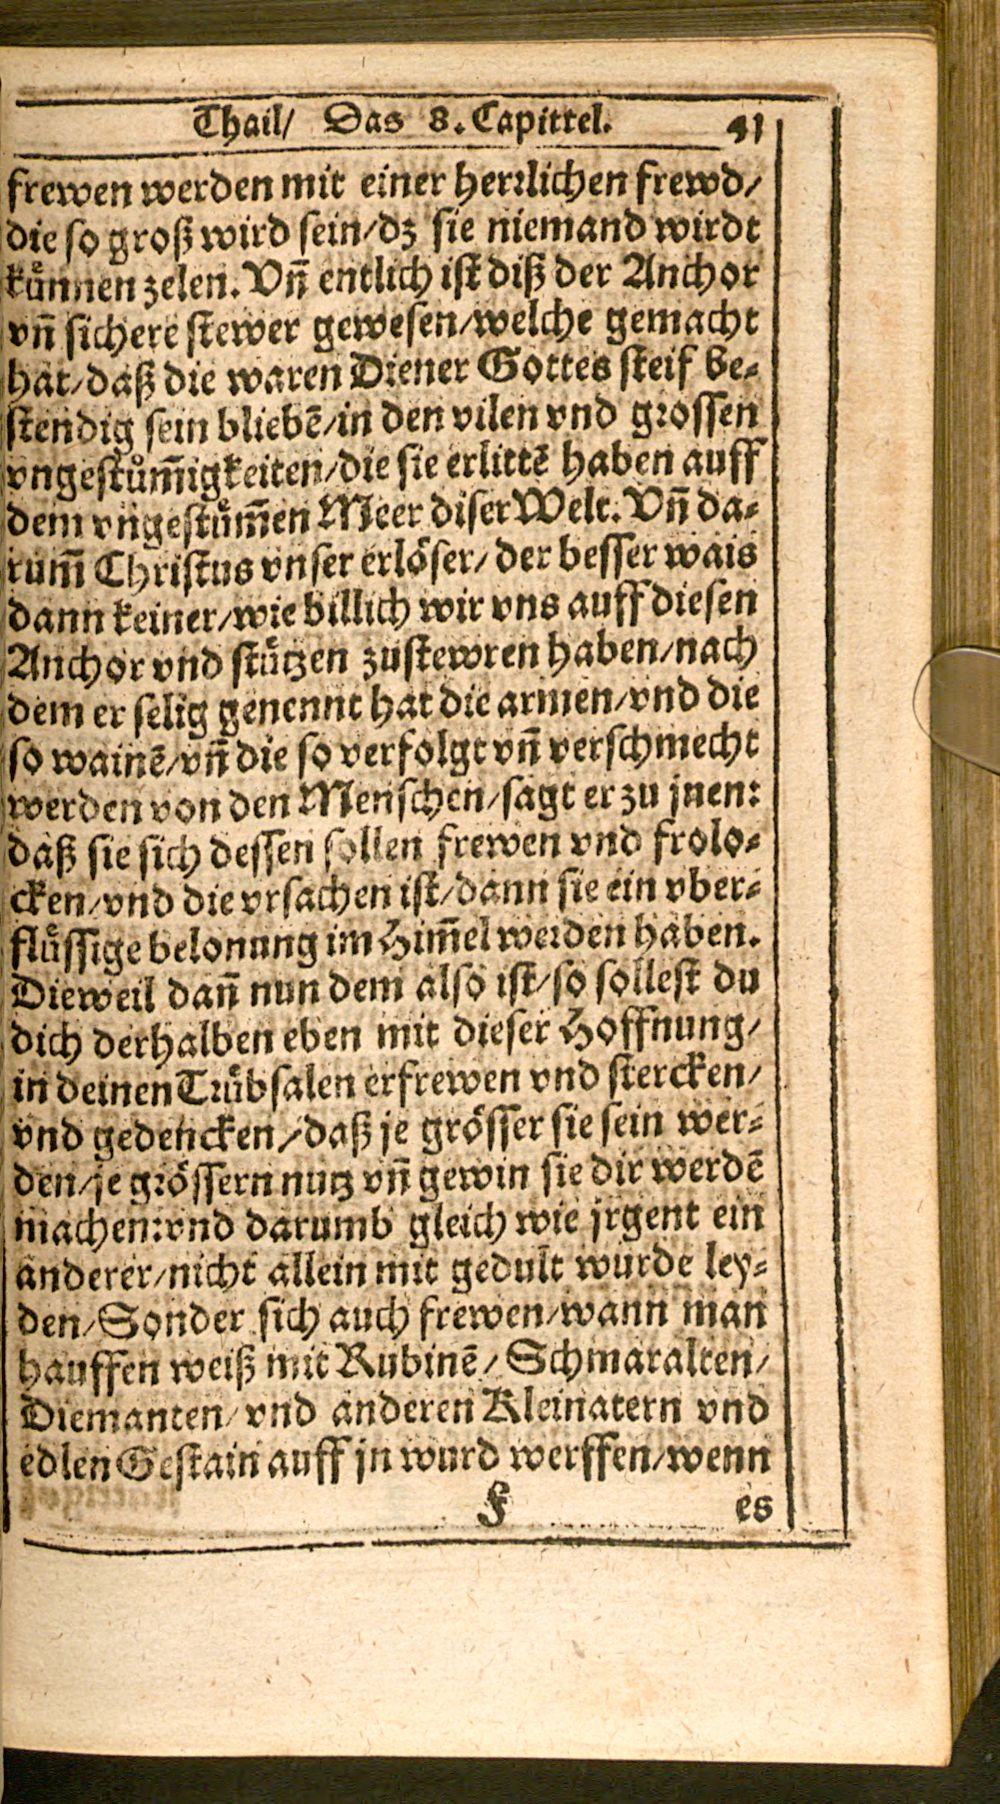 Thail/ Das 8. Capittel. 41
frewen werden mit einer herꝛlichen frewd/
die so groß wird sein/dz sie niemand wirdt
kuͤnnen zelen. Vñ entlich ist diß der Anchor
vñ sichere stewer gewesen/welche gemacht
hat/daß die waren Diener Gottes steif be-
stendig sein bliebẽ/in den vilen vnd gꝛossen
vngestuͤm̃igkeiten/die sie erlittẽ haben auff
dem vngestuͤm̃en Meer diser Welt. Vñ da-
rum̃ Christus vnser erloͤser/ der besser wais
dann keiner/wie billich wir vns auff diesen
Anchor vnd stuͤtzen zustewren haben/nach
dem er selig genennt hat die armen/vnd die
so wainẽ/vñ die so verfolgt vñ verschmecht
werden von den Menschen/sagt er zu jnen:
daß sie sich dessen sollen frewen vnd frolo-
cken/vnd die vrsachen ist/dann sie ein vber-
fluͤssige belonung im Him̃el werden haben.
Dieweil dañ nun dem also ist/so sollest du
dich derhalben eben mit dieser Hoffnung/
in deinen Tꝛuͤbsalen erfrewen vnd stercken/
vnd gedencken/daß je groͤsser sie sein wer-
den/je gꝛoͤssern nutz vñ gewin sie dir werdẽ
machen:vnd darumb gleich wie jrgent ein
anderer/nicht allein mit gedult wurde ley-
den/Sonder sich auch frewen/wann man
hauffen weiß mit Rubinẽ/ Schmaralten/
Diemanten/ vnd anderen Kleinatern vnd
edlen Gestain auff jn wurd werffen/wenn
F es